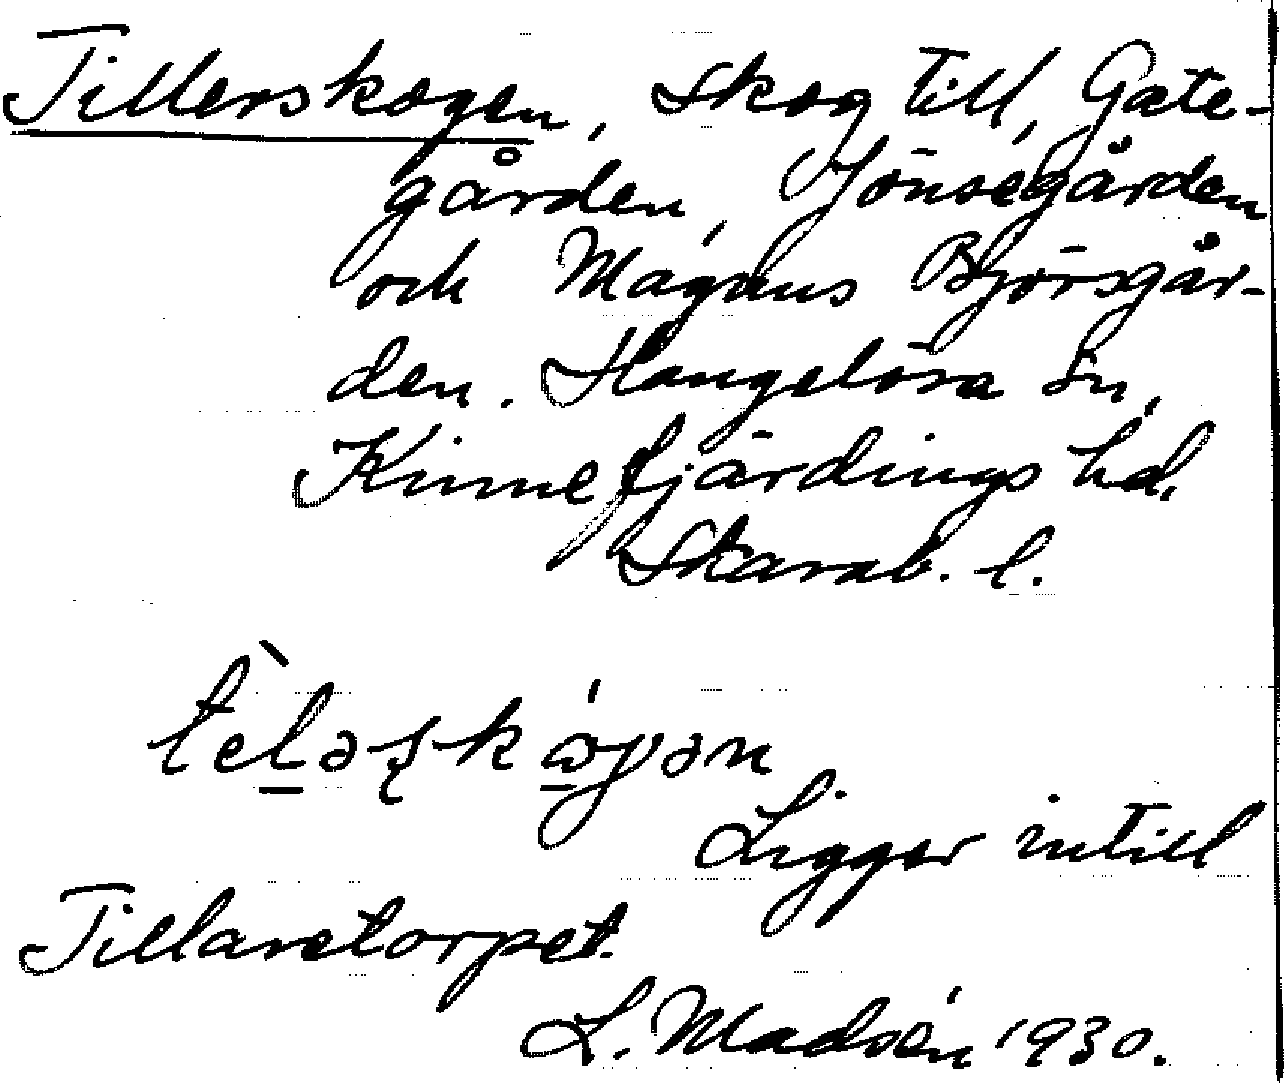 Tillerskogen, Skog till Gate-
gården, Jönsegården
och Magnus Björsgår-
den. Hangelösa sn,
Kinnefjärdings hd.
Skarab. l.
Ligger intill
Tillaretorpet.
L. Madsén 1930.